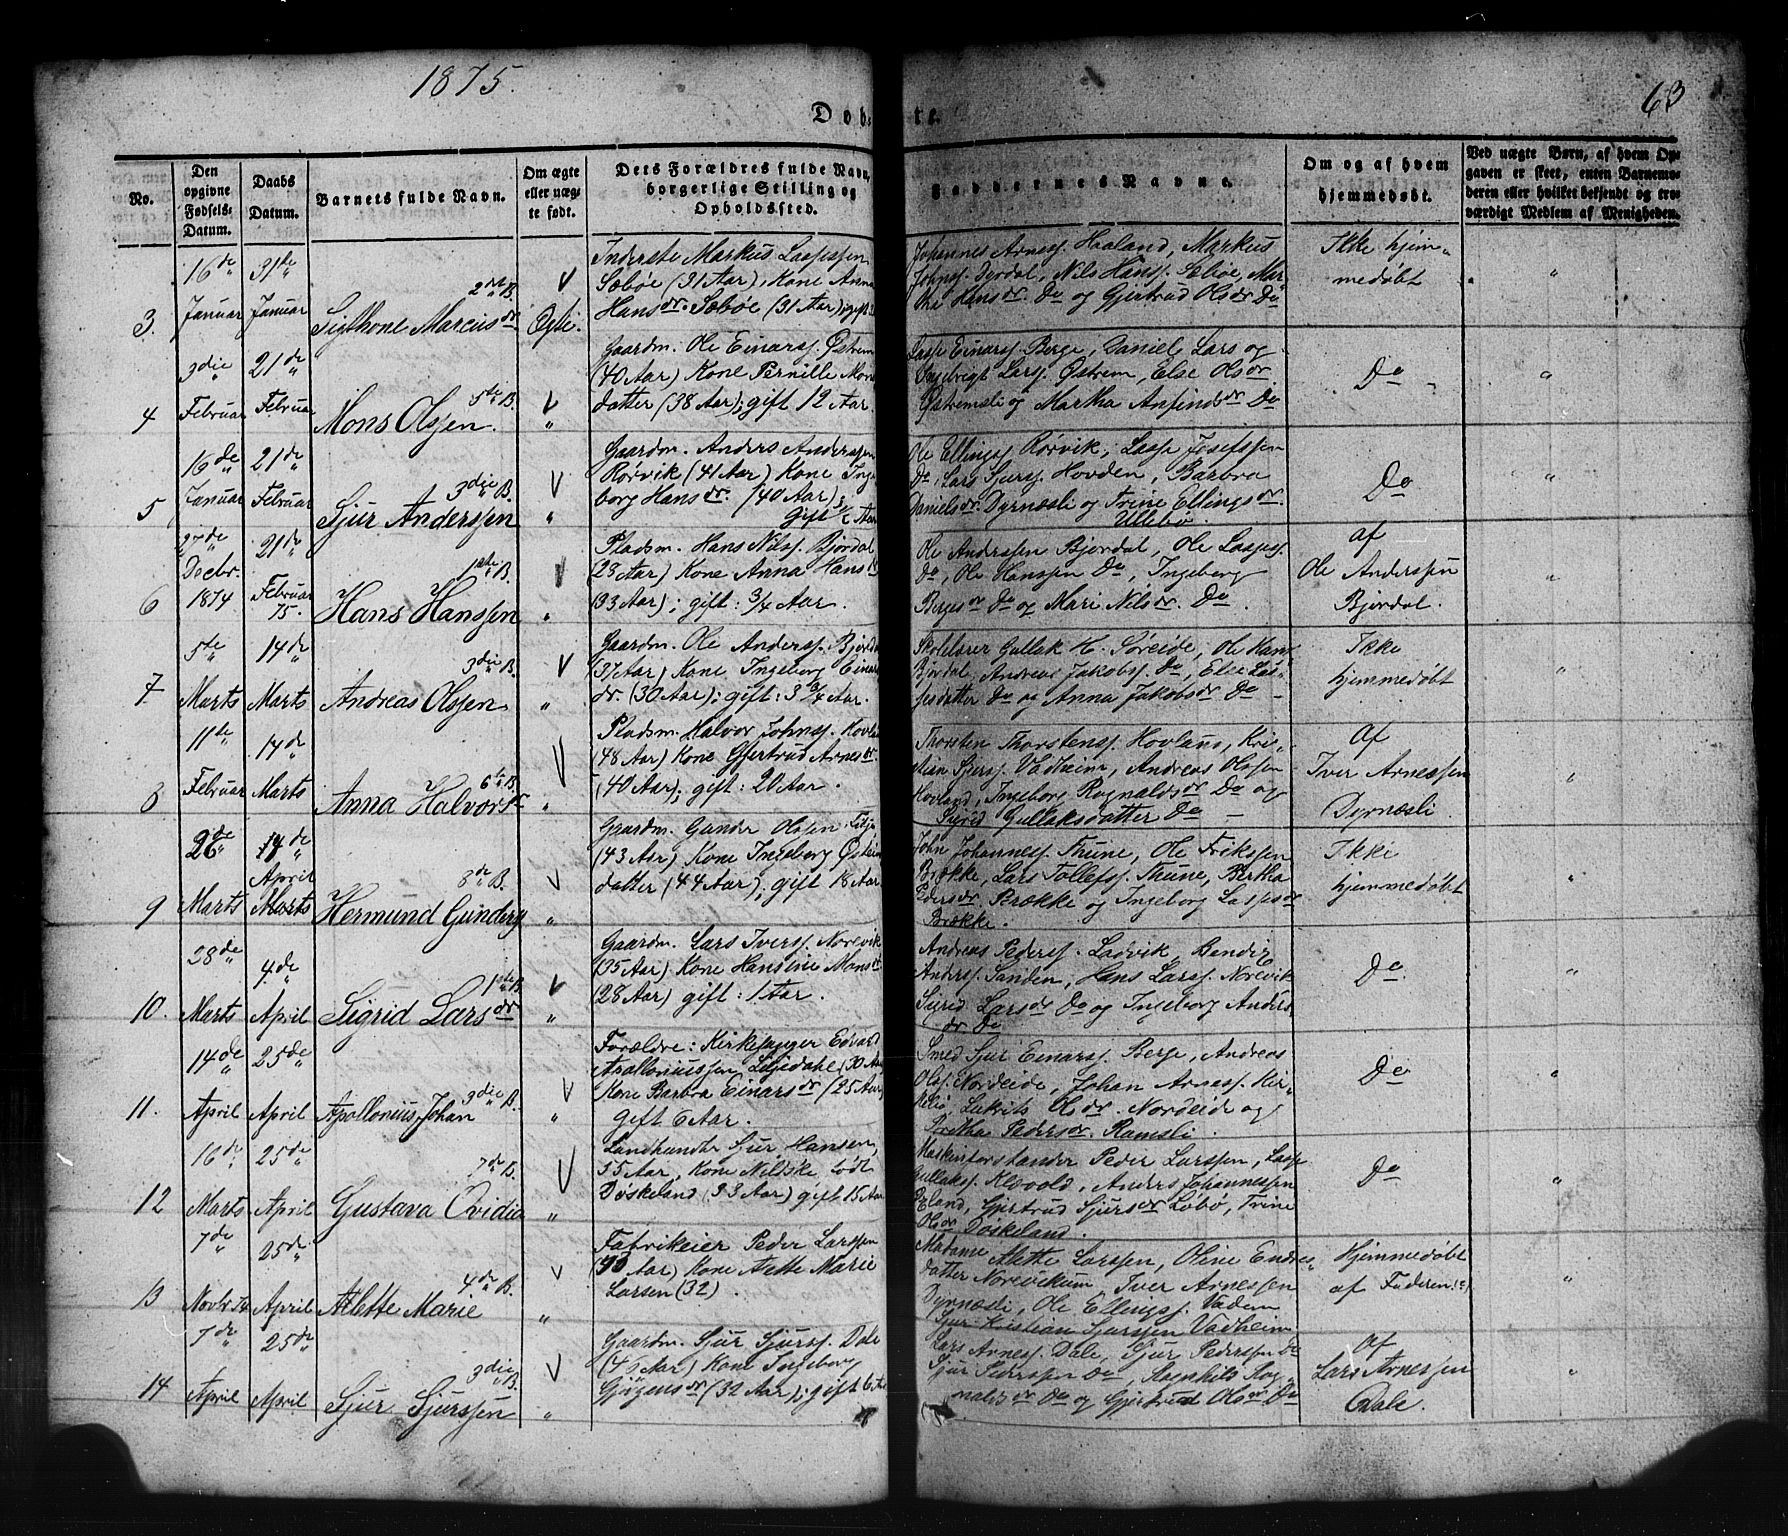 1875.
63
Dob-
te.
No.
Den opgivne Fødsels-Datum.
Daabs Datum.
Barnets fulde Navn.
Om ægte eller uæg-te født.
Dets Forældres fulde Navn, borgerlige Stilling og Opholdssted.
Faddernes Navne.
Om og af hvem hjemmedøbt.
Ved uægte Børn, af hvem Op-gaven er skeet, enten Barnemo-deren eller hvilket bekjendt og tro-værdigt Medlem af Menigheden.
3.
16de Januar
31te Januar
2det B.
Sigthone Marcusdr
Ægte.
Inderste Markus Lassessen
Sæbøe (31 Aar), Kone Anna
Hansdr. Sæbøe (31 Aar); gift
Johannes Arness. Haaland, Markus
Johnss. Dyrdal, Nils Hanss. Sæbøe, Mar-
tha Hansdr. Do og Gjertrud Olsdr Do
Ikke hjem-
medøbt
4
3die Februar
21de Februar
5te B.
Mons Olssen.
"
Gaardm. Ole Einarss. Østrem
(40 Aar) Kone Pernille Mons
datter (38 Aar); gift 12 Aar.
Lasse Einarss. Berge, Daniel Lars og
Ingebrigt Larss. Østrem, Else Olsdr.
Østremsli og Martha Anfindsdr Do
Do
"
5
16de Januar
21de Februar
3die B.
Sjur Anderssen
"
Gaardm. Anders Anderssen
Rørvik (41 Aar) Kone Inge
borg Hansdr. (40 Aar);
Gift ½ Aar
Ole Ellingss Rørvik, Lasse Josefssen
Do, Lars Sjurss. Hovden, Barbra
Danielsdr. Dyrnæsli og Trine Ellingsdr
Ullebø.
Do
"
6
27de Decbr. 1874
21de Februar 75.
1ste B.
Hans Hanssen
"
Pladsm. Hans Nilss. Bjordal
(28 Aar) Kone Anna Hansdr
(33 Aar); gift: ¾ Aar.
Ole Anderssen Bjordal, Ole Lassess.
Do, Ole Hanssen Do, Ingeborg
Bergesdr Do og Mari Nilsdr. Do
af
Ole Anderssen
Bjordal.
"
7.
5te Marts
14de Marts
3die B.
Andreas Olssen
"
Gaardm. Ole Anderss. Bjordal
(37 Aar) Kone Ingeborg Einars
dr. (30 Aar); gift: 3 ¾ Aar.
Skolelærer Gullak H. Søreide, Ole Hans
Bjordal, Andreas Jakobss. Do, Else Las-
sesdatter Do og Anna Jakobsdr Do -
Ikke
hjemmedøbt
"
8
11te Februar
14de Marts
6te B.
Anna Halvorsdr
"
Pladsm. Halvor Johnss. Hovland
(48 Aar) Kone Gjertrud Arnesdr.
(40 Aar); gift: 20 Aar.
Thorsten Thorstenss. Hovland, Kri-
stian Sjurss. Vadheim, Andreas Olssen
Hovland, Ingeborg Ragnaldsdr Do og
Sigrid Gullaksdatter Do -
af
Iver Arnessen
Dyrnæsli
"
9
26de Marts
14de April Marts
8de B.
Hermund Gunderss
"
Gaardm. Gunder Olssen
(43 Aar) Kone Ingeborg
datter (44 Aar); gift 18 Aar.
John Johanness. Thune, Ole Erikssen
Brække, Lars Tollefss. Thune, Bertha
Pedersdr. Brække og Ingeborg Lassesdr
Brække.
Ikke
hjemmedøbt
"
10.
28de Marts
4de April
1ste B.
Sigrid Larsdr
"
Gaardm. Lars Iverss. Norevik
(35 Aar) Kone Hansine Monsdr
(28 Aar) gift: 1 Aar.
Andreas Pederss. Ladvik, Bendiz
Anderss. Sanden, Hans Larss. Norevik
Sigrid Larsdr Do og Ingeborg Anders-
dr. Do
Do
"
11.
14de April
25de April
3die B.
Apollonius Johan
"
Forældre: Kirkesanger Edvard
Apolloniussen Liljedahl (30 Aar)
Kone Barbra Einarsdr (25 Aar)
gift 6 Aar.
Smed Sjur Einarss. Berge, Andreas
Olss. Nordeide, Johan Arness. Kir-
kebø, Lukrits Olsdr. Nordeide og
Dorthea Pedersdr. Ramsli.
Do
"
12
16de Marts
25de April
7de B.
Gustava Ovidia
"
Landhandler Sjur Hansen,
35 Aar, Kone Nilsike født
Døskeland (33 Aar) gift 15 Aar
Maskinforstander Peder Larssen, Lasse
Gullakss. Klævold, Anders Johannessen
Øeland, Gjertrud Sjursdr Løbø, Trine
Olsdr Døskeland.
Do
"
13
7de Novbr. 74
25de April
4de B.
Alette Marie
"
Fabrikeier Peder Larssen
(40 Aar) Kone Alette Marie
Larsen (32).
Madame Alette Larssen, Oline Endres-
datter Norevikum, Iver Arnessen
Dyrnæsli, Ole Ellingss. Vadem
Sjur Kristian Sjurssen Vadheim
Hjemmedøbt
af Faderen
"
14
7de April
25de April
3die B.
Sjur Sjurssen
"
Gaardm. Sjur Sjurss. Dale
Kone Ingeborg
Gjøgensdr (32 Aar); gift 6 Aar
Lars Arness. Dale, Sjur Pederssen Do
Sjur Sjurssen Do, Ragnhild Rag-
naldsdr Do og Gjertrud Olsdr Do
af
Lars Arnessen
Dale.
"